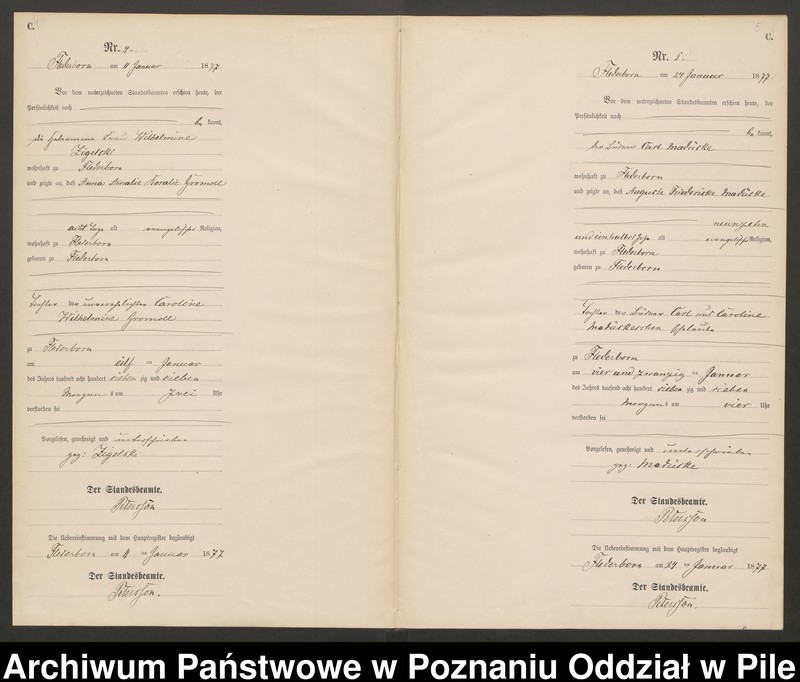 C.
Nr. 4.
Flederborn am 11 Januar 1877
Vor dem unterzeichneten Standesbeamten erschien heute, der
Persönlichkeit nach
be kannt,
die Hebamme Wilhelmine
Zigelski
wohnhaft zu Flederborn
und zeigte an, daß Anna Amalie Rosalie Gromoll
acht Tage alt evangelischer Religion,
wohnhaft zu Flederborn
geboren zu Flederborn
Tochter der unverehelichten Caroline
Wilhelmine Gromoll
zu Flederborn
am eilf ten Januar
des Jahres tausend acht hundert sieben zig und sieben
Morgens um zwei Uhr
verstorben sei
Vorgelesen, genehmigt und unterschrieben
gez: Zigelski
Der Standesbeamte.
Petersson
Die Uebereinstimmung mit dem Hauptregister beglaubigt
Flederborn am 11 ten Januar 1877
Der Standesbeamte.
Petersson.
5
C.
Nr. 5.
Flederborn am 24 Januar 1877
Vor dem unterzeichneten Standesbeamten erschien heute, der
Persönlichkeit nach
be kannt,
der Büdner Carl Madüske
wohnhaft zu Flederborn
und zeigte an, daß Auguste Friederike Madüske
neunzehn
und ein halbes Jahr alt evangelischer Religion,
wohnhaft zu Flederborn
geboren zu Flederborn
Tochter der Büdner Carl und Caroline
Madüskeschen Eheleute
zu Flederborn
am vier und zwanzig ten Januar
des Jahres tausend acht hundert sieben zig und sieben
Morgens um vier Uhr
verstorben sei
Vorgelesen, genehmigt und unterschrieben
gez: Madüske
Der Standesbeamte.
Petersson
Die Uebereinstimmung mit dem Hauptregister beglaubigt
Flederborn am 24 ten Januar 1877
Der Standesbeamte.
Petersson.
Archiwum Państwowe w Poznaniu Oddział w Pile